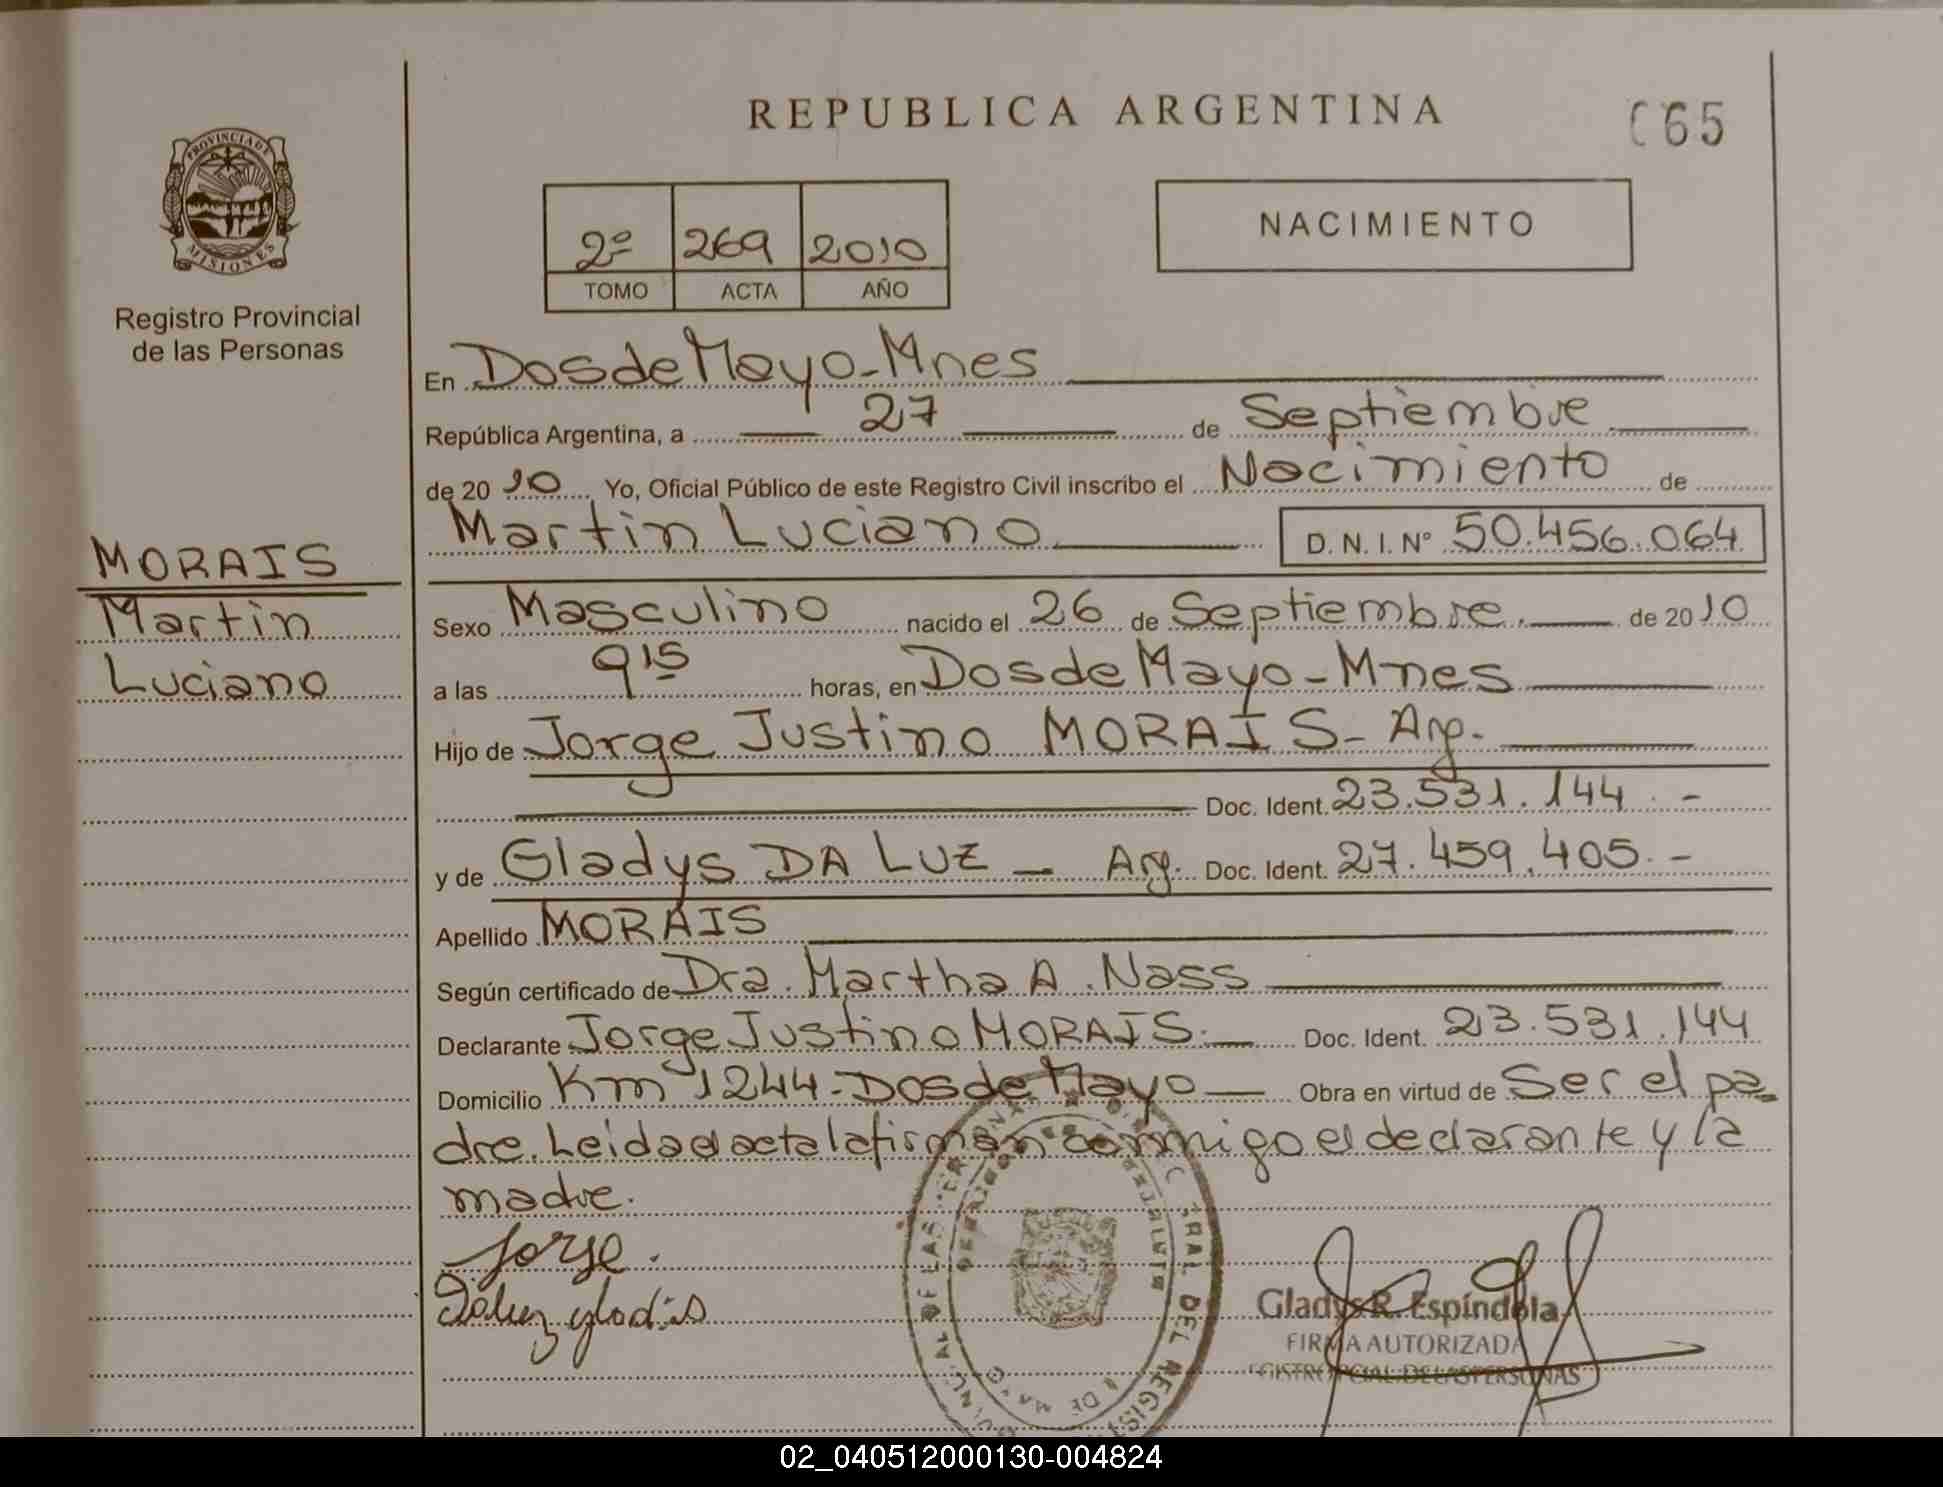 REPUBLICA ARGENTINA
065
PROVINCIA DE
MISIONES
Registro Provincial
de las Personas
2º 269 2010
TOMO ACTA AÑO
NACIMIENTO
En Dos de Mayo - Mnes
República Argentina, a 27 de Septiembre
de 2010 Yo, Oficial Público de este Registro Civil inscribo el Nacimiento de
Martin Luciano D.N.I. Nº 50.456.064
MORAIS
Martin
Luciano
Sexo Masculino nacido el 26 de Septiembre. de 2010
a las 9 15 horas, en Dos de Mayo - Mnes
Hijo de Jorge Justino MORAIS - Arg.
Doc. Ident. 23.531.144.-
y de Gladys DA LUZ - Arg. Doc. Ident. 27.459.405.-
Apellido MORAIS
Según certificado de Dra. Martha A. Nass
Declarante Jorge Justino MORAIS.- Doc. Ident. 23.531.144
Domicilio Km 1244 - Dos de Mayo Obra en virtud de Ser el pa-
dre. Leida el acta la firman conmigo el declarante y la
madre.
Jorge.
Daluz gladis
Gladys R. Espíndola
FIRMA AUTORIZADA
DE LAS PERSONAS
DEL REGIST
DE MAYO
02_040512000130-004824